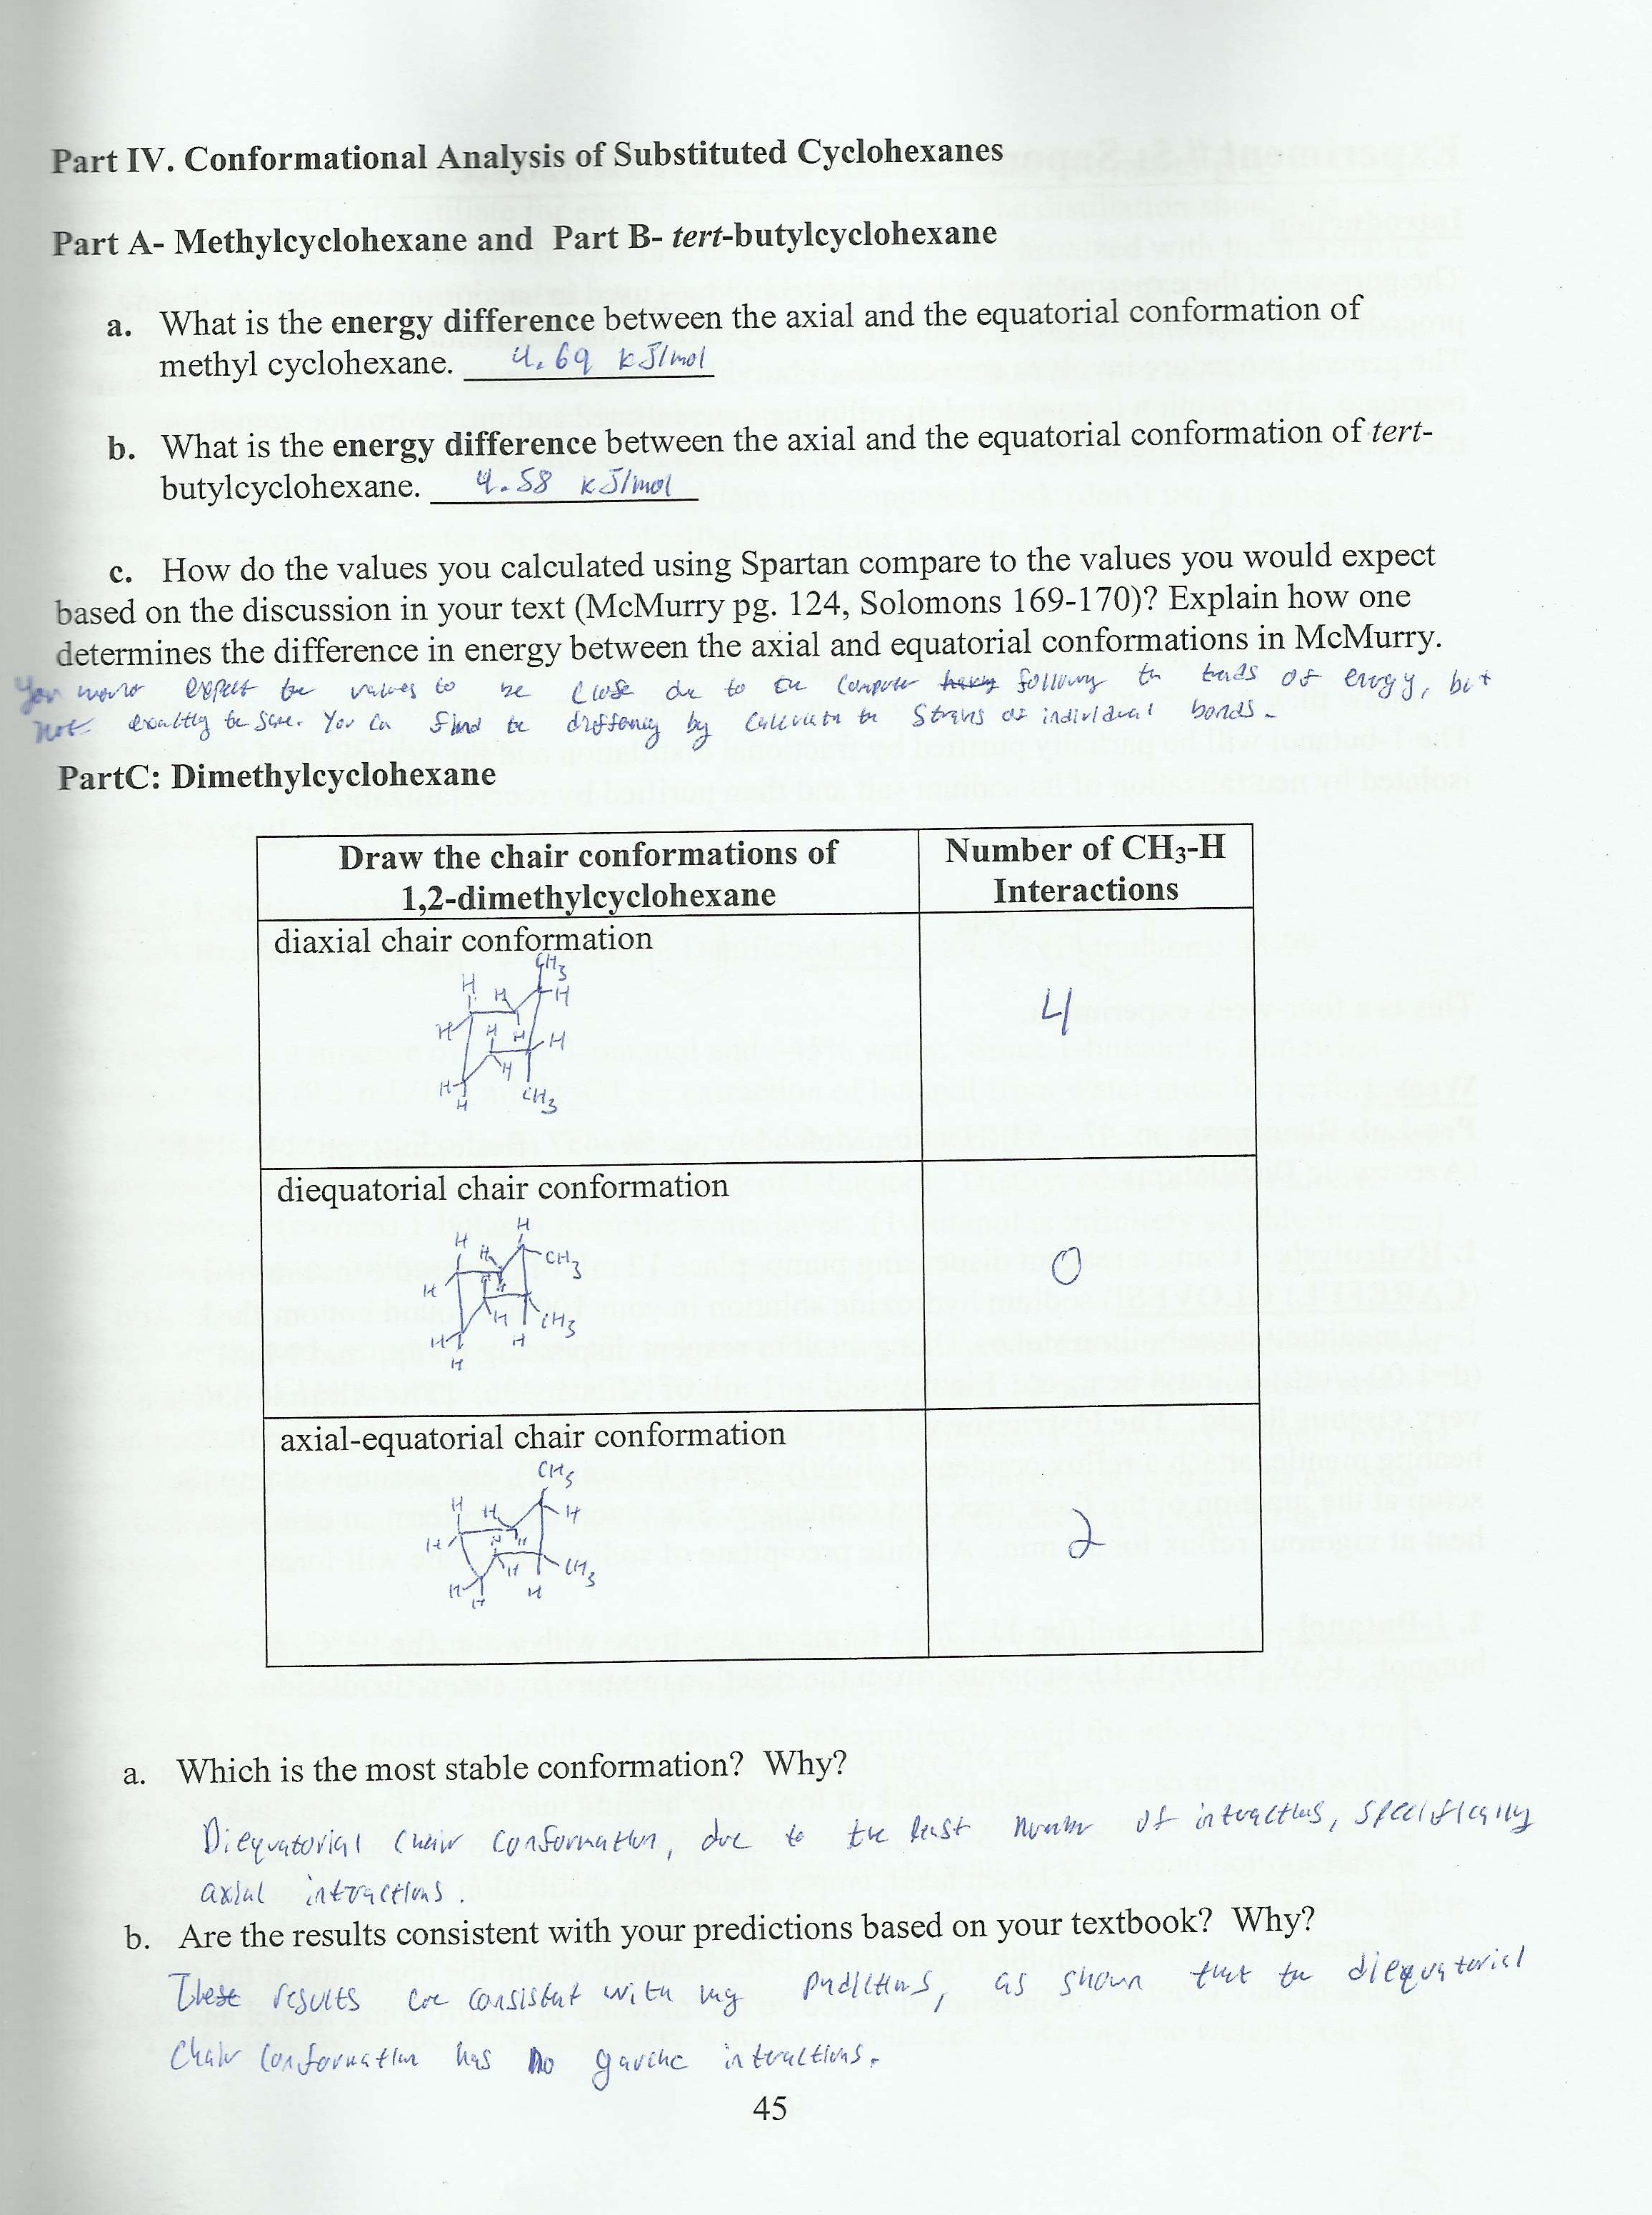 Part IV. Conformational Analysis of Substituted Cyclohexanes
Part A- Methylcyclohexane and Part B- tert-butylcyclohexane
a. What is the energy difference between the axial and the equatorial conformation of
methyl cyclohexane. 4.69 kJ/mol
b. What is the energy difference between the axial and the equatorial conformation of tert-
butylcyclohexane. 4.58 kJ/mol
c. How do the values you calculated using Spartan compare to the values you would expect
based on the discussion in your text (McMurry pg. 124, Solomons 169-170)? Explain how one
determines the difference in energy between the axial and equatorial conformations in McMurry.
You would expect the values to be close due to the computer following the trends of energy, but
not the same. You can find the by the strains of individual bonds.
PartC: Dimethylcyclohexane
Draw the chair conformations of
1,2-dimethylcyclohexane
Number of CH3-H
Interactions
diaxial chair conformation
CH3
H H H
H H H H
H H CH3
H
4
diequatorial chair conformation
H
H H CH3
H
H CH3
H H
H
0
axial-equatorial chair conformation
CH3
H H H
H
H CH3
H H
H
2
a. Which is the most stable conformation? Why?
Diequatorial chair conformation, due to the least number of interactions, specifically
axial interactions.
b. Are the results consistent with your predictions based on your textbook? Why?
These results are consistent with my predictions, as shown that the diequatorial
chair conformation has no gauche interactions.
45